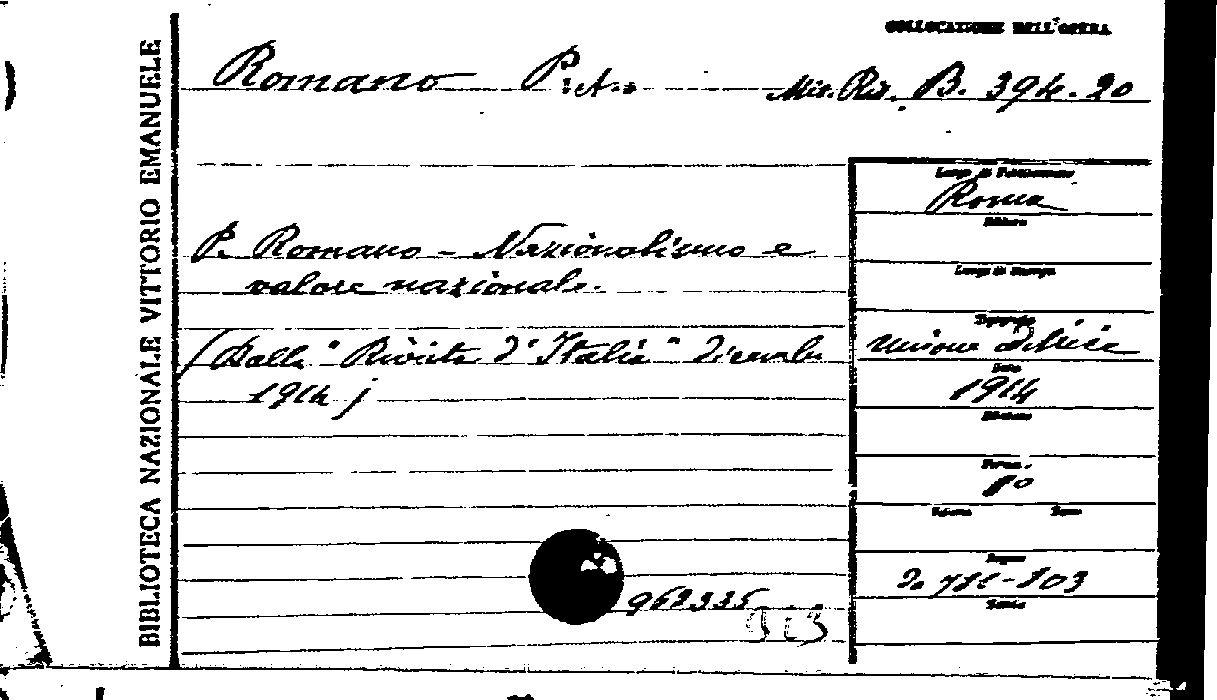 BIBLIOTECA NAZIONALE VITTORIO EMANUELE
COLLOCAZIONE DELL'OPERA
Romano Pietro
Mis. Ris. B. 394.20
P. Romano - Nazionalismo e
valore nazionale.
(Dalla "Rivista d'Italia" Dicembre
1914)
Luogo di Pubblicazione
Roma
Editore
Luogo di Stampa
Tipografo
Unione Editrice
Data
1914
Edizione
Formato
8°
Volume
Pagine
Da 781-803
Serie
968335